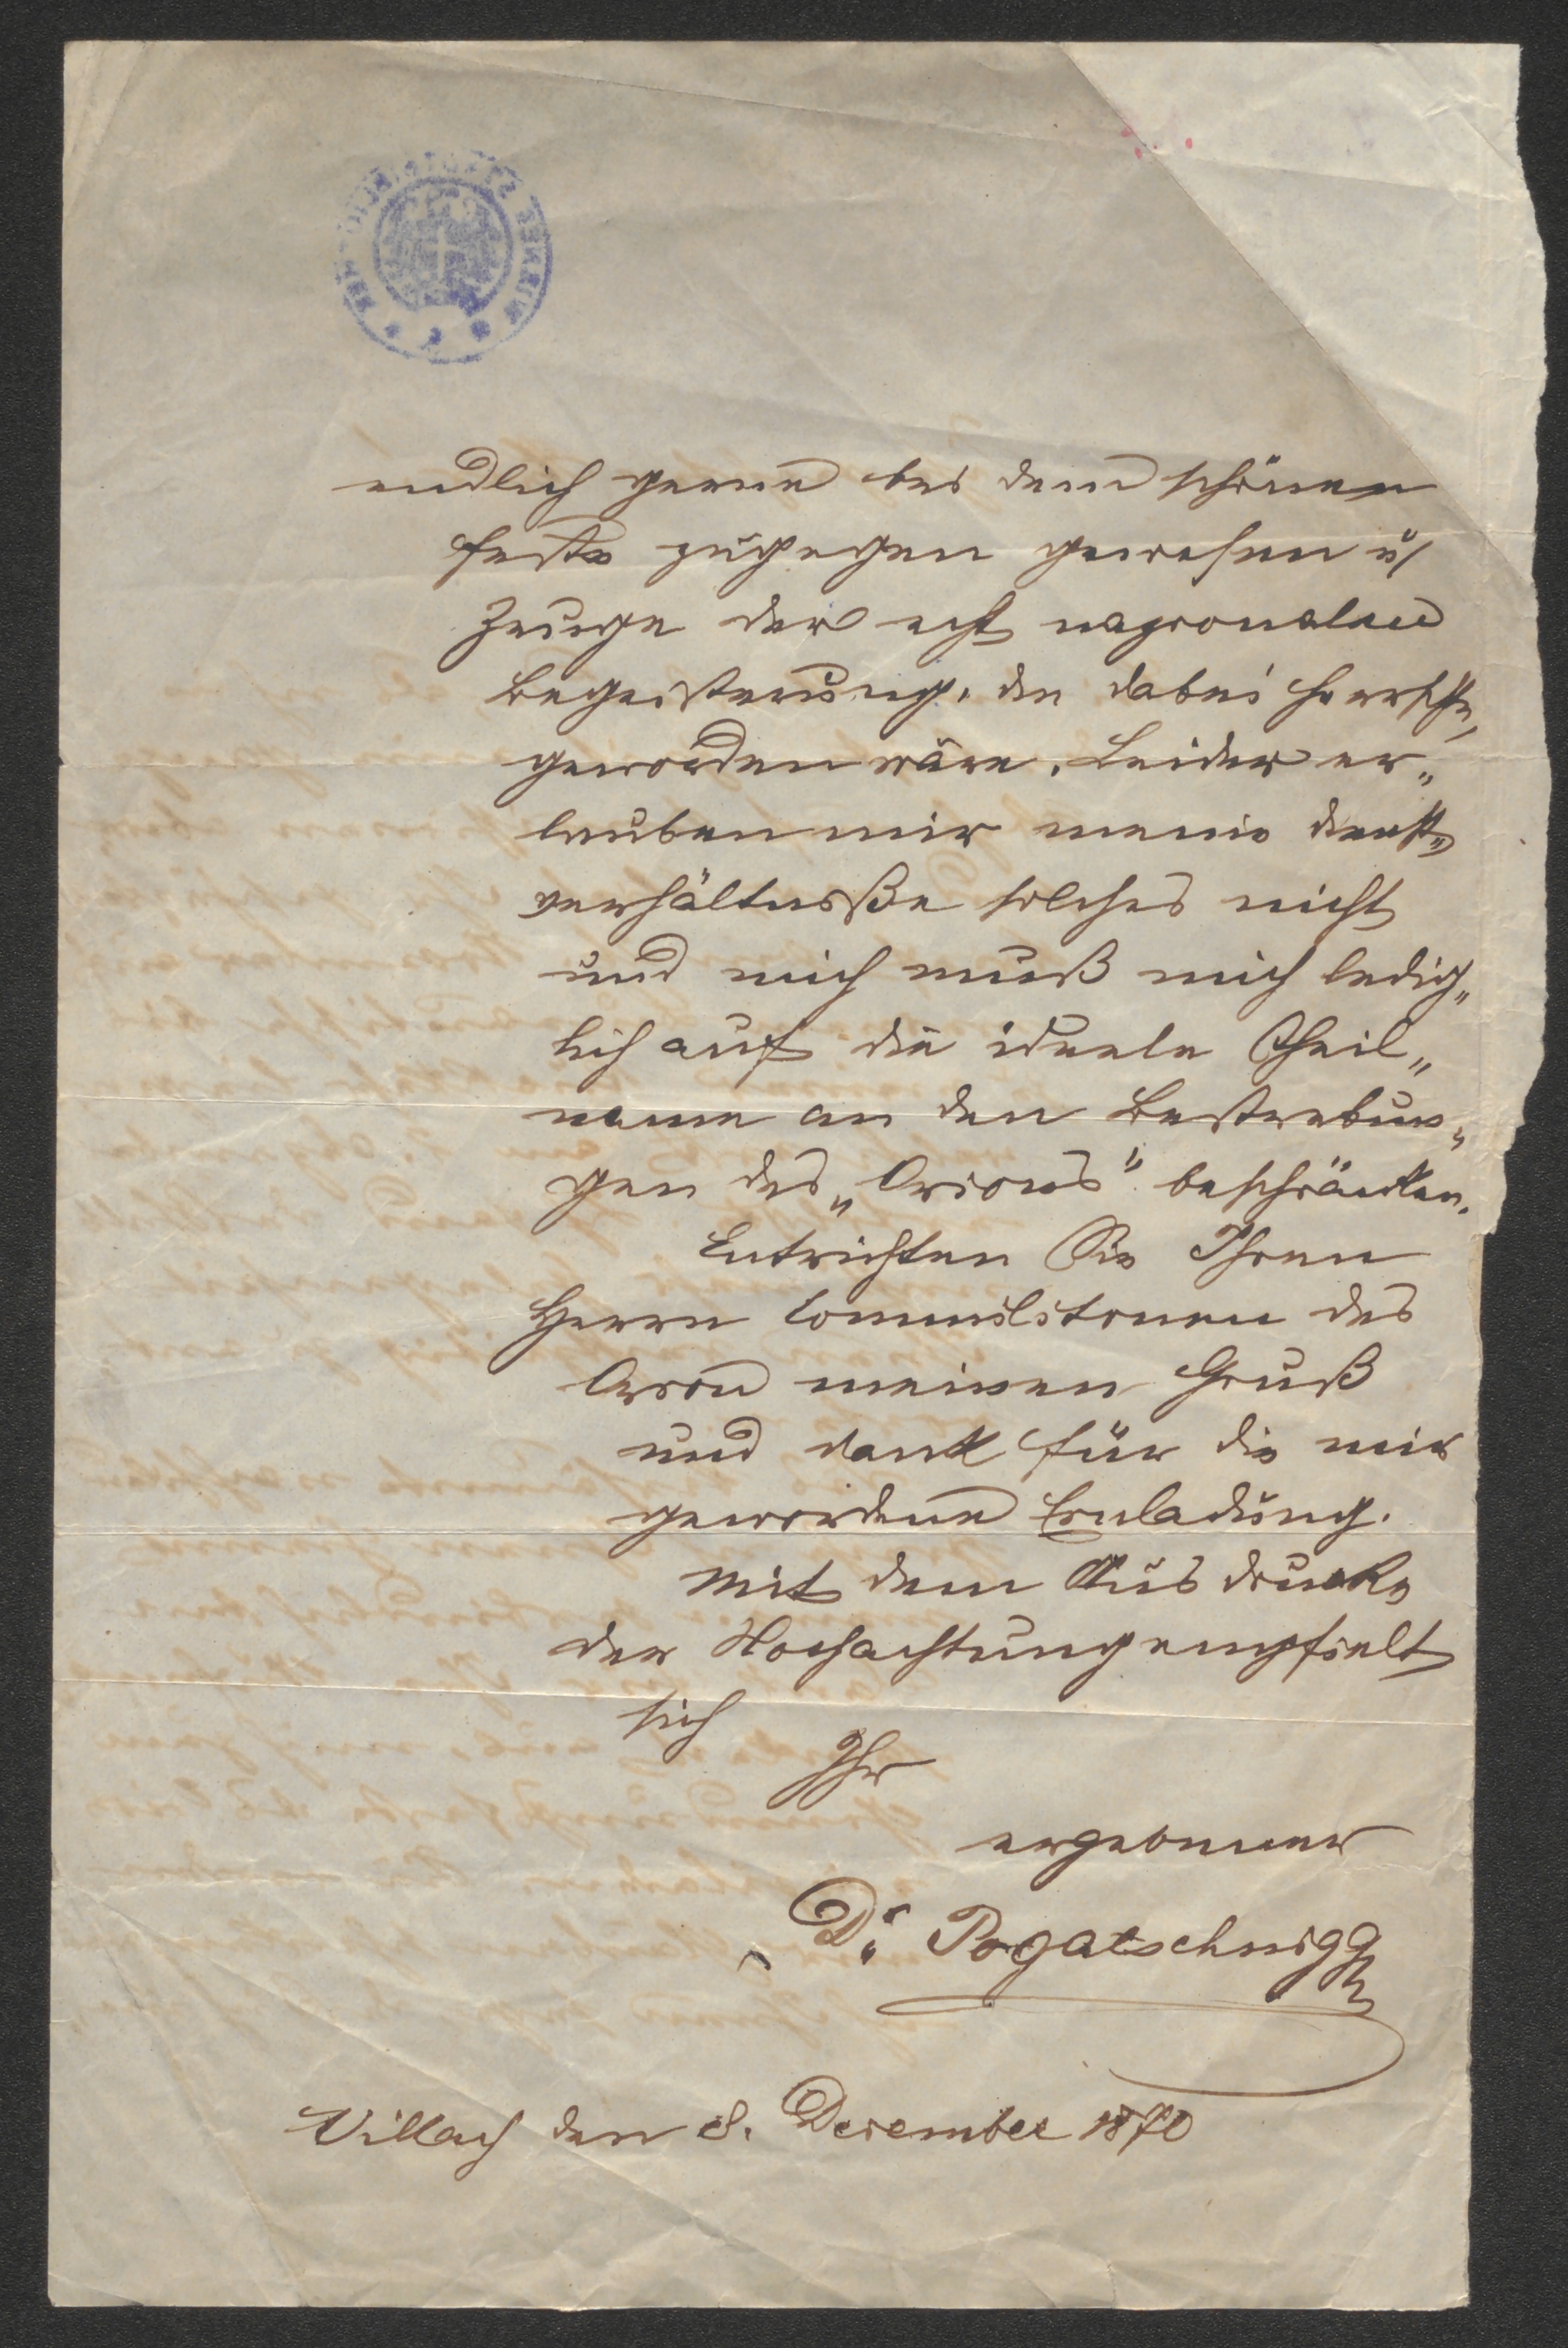 endlich gerne bei dem schönen
Feste zugegen gewesen u/
Zeuge der echt nazionalen
Begeisterung, die dabei herrschte,
geworden wäre. Leider er„
lauben mir meine Dienst„
verhältnisße solches nicht
und mich muß mich ledig„
lich auf die ideele Theil„
name an den Bestrebun„
gen des „Orions" beschränken.
Entrichten Sie Ihren
Herrn Commilitonen des
Orion meinen Gruß
und Dank für die mir
gewordene Einladung.
Mit dem Ausdrucke
der Hochachtung empfielt
sich
Ihr
ergebener
Dr Pogatschnigg
Villach den 8. Dezember 1870